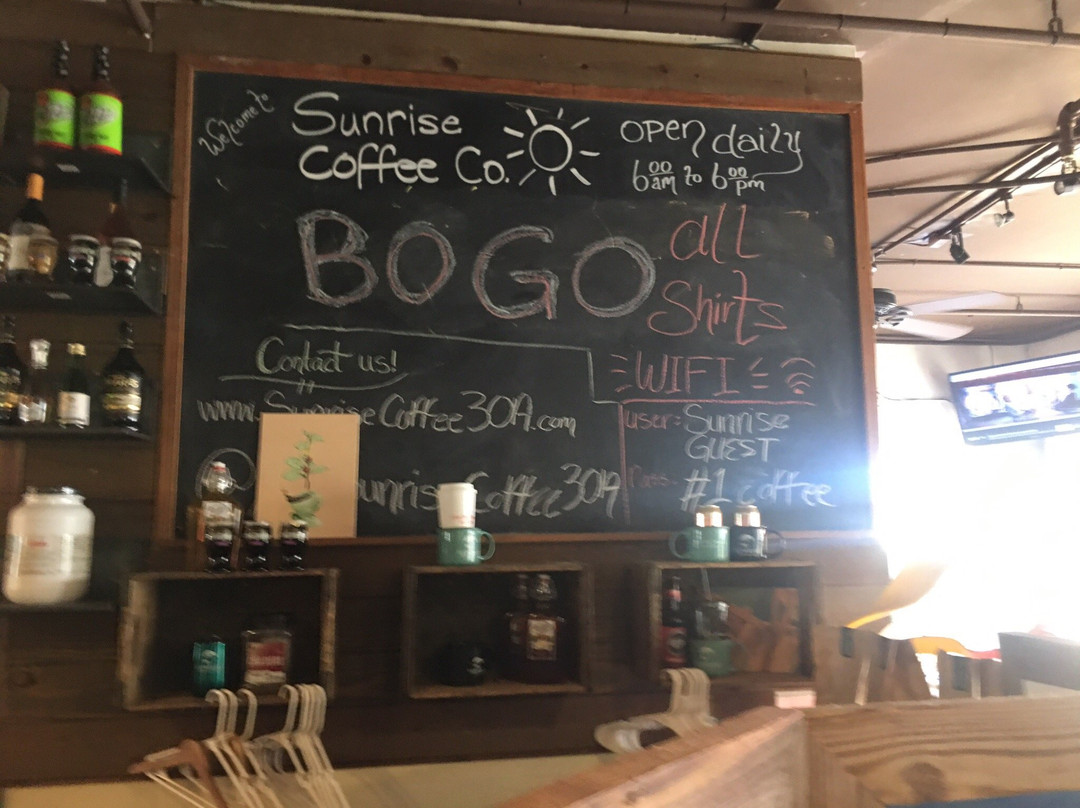 Welcome to
Sunrise
Coffee Co.
open daily
6:00 am to 6:00 pm
BOGO
all
Shirts
Contact us!
www.SunriseCoffee30A.com
unrise Coffee30A
WIFI
user: Sunrise
GUEST
Pass- #1 coffee